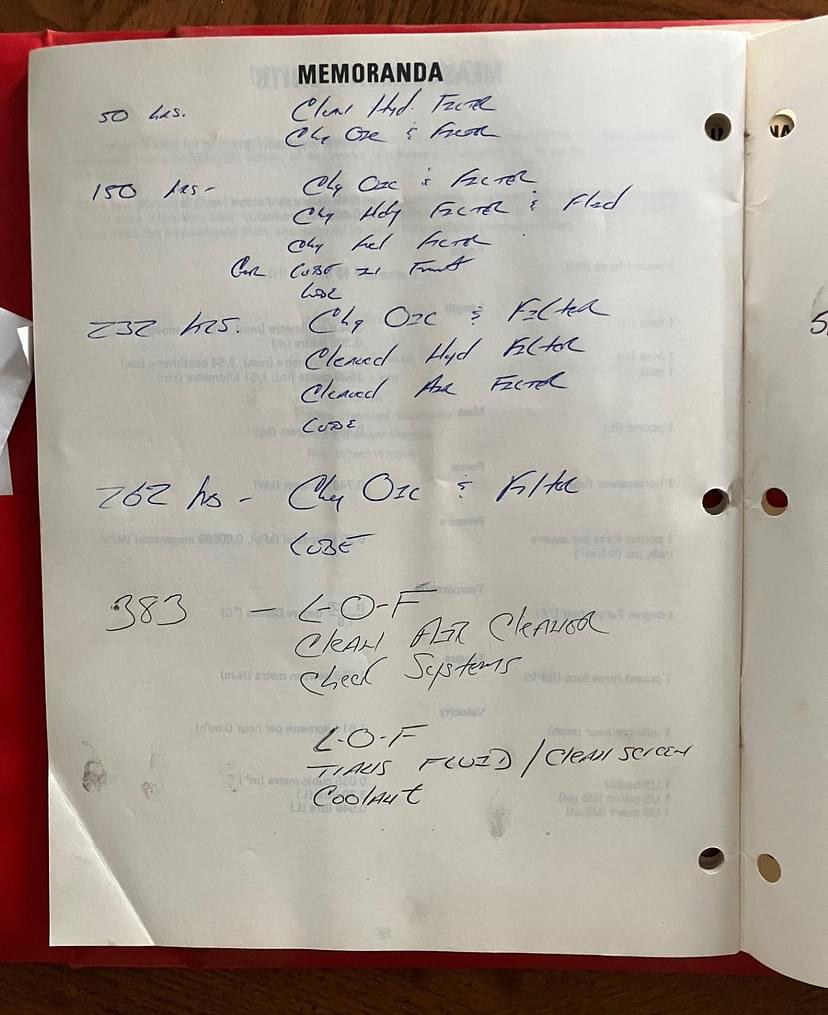 MEMORANDA
50 hrs. Clean Hyd. Filter
Chg Oil & Filter
150 hrs- Chg Oil & Filter
Chg Hdy Filter & Fluid
Chg Fuel Filter
Lube in Front
232 hrs. Chg Oil & Filter
Cleaned Hyd Filter
Cleaned Air Filter
Lube
262 hrs - Chg Oil & Filter
LUBE
383 - L-O-F
Clean Air Cleaner
Check Systems
L-O-F
TRANS FLUID / Clean SCREEN
Coolant